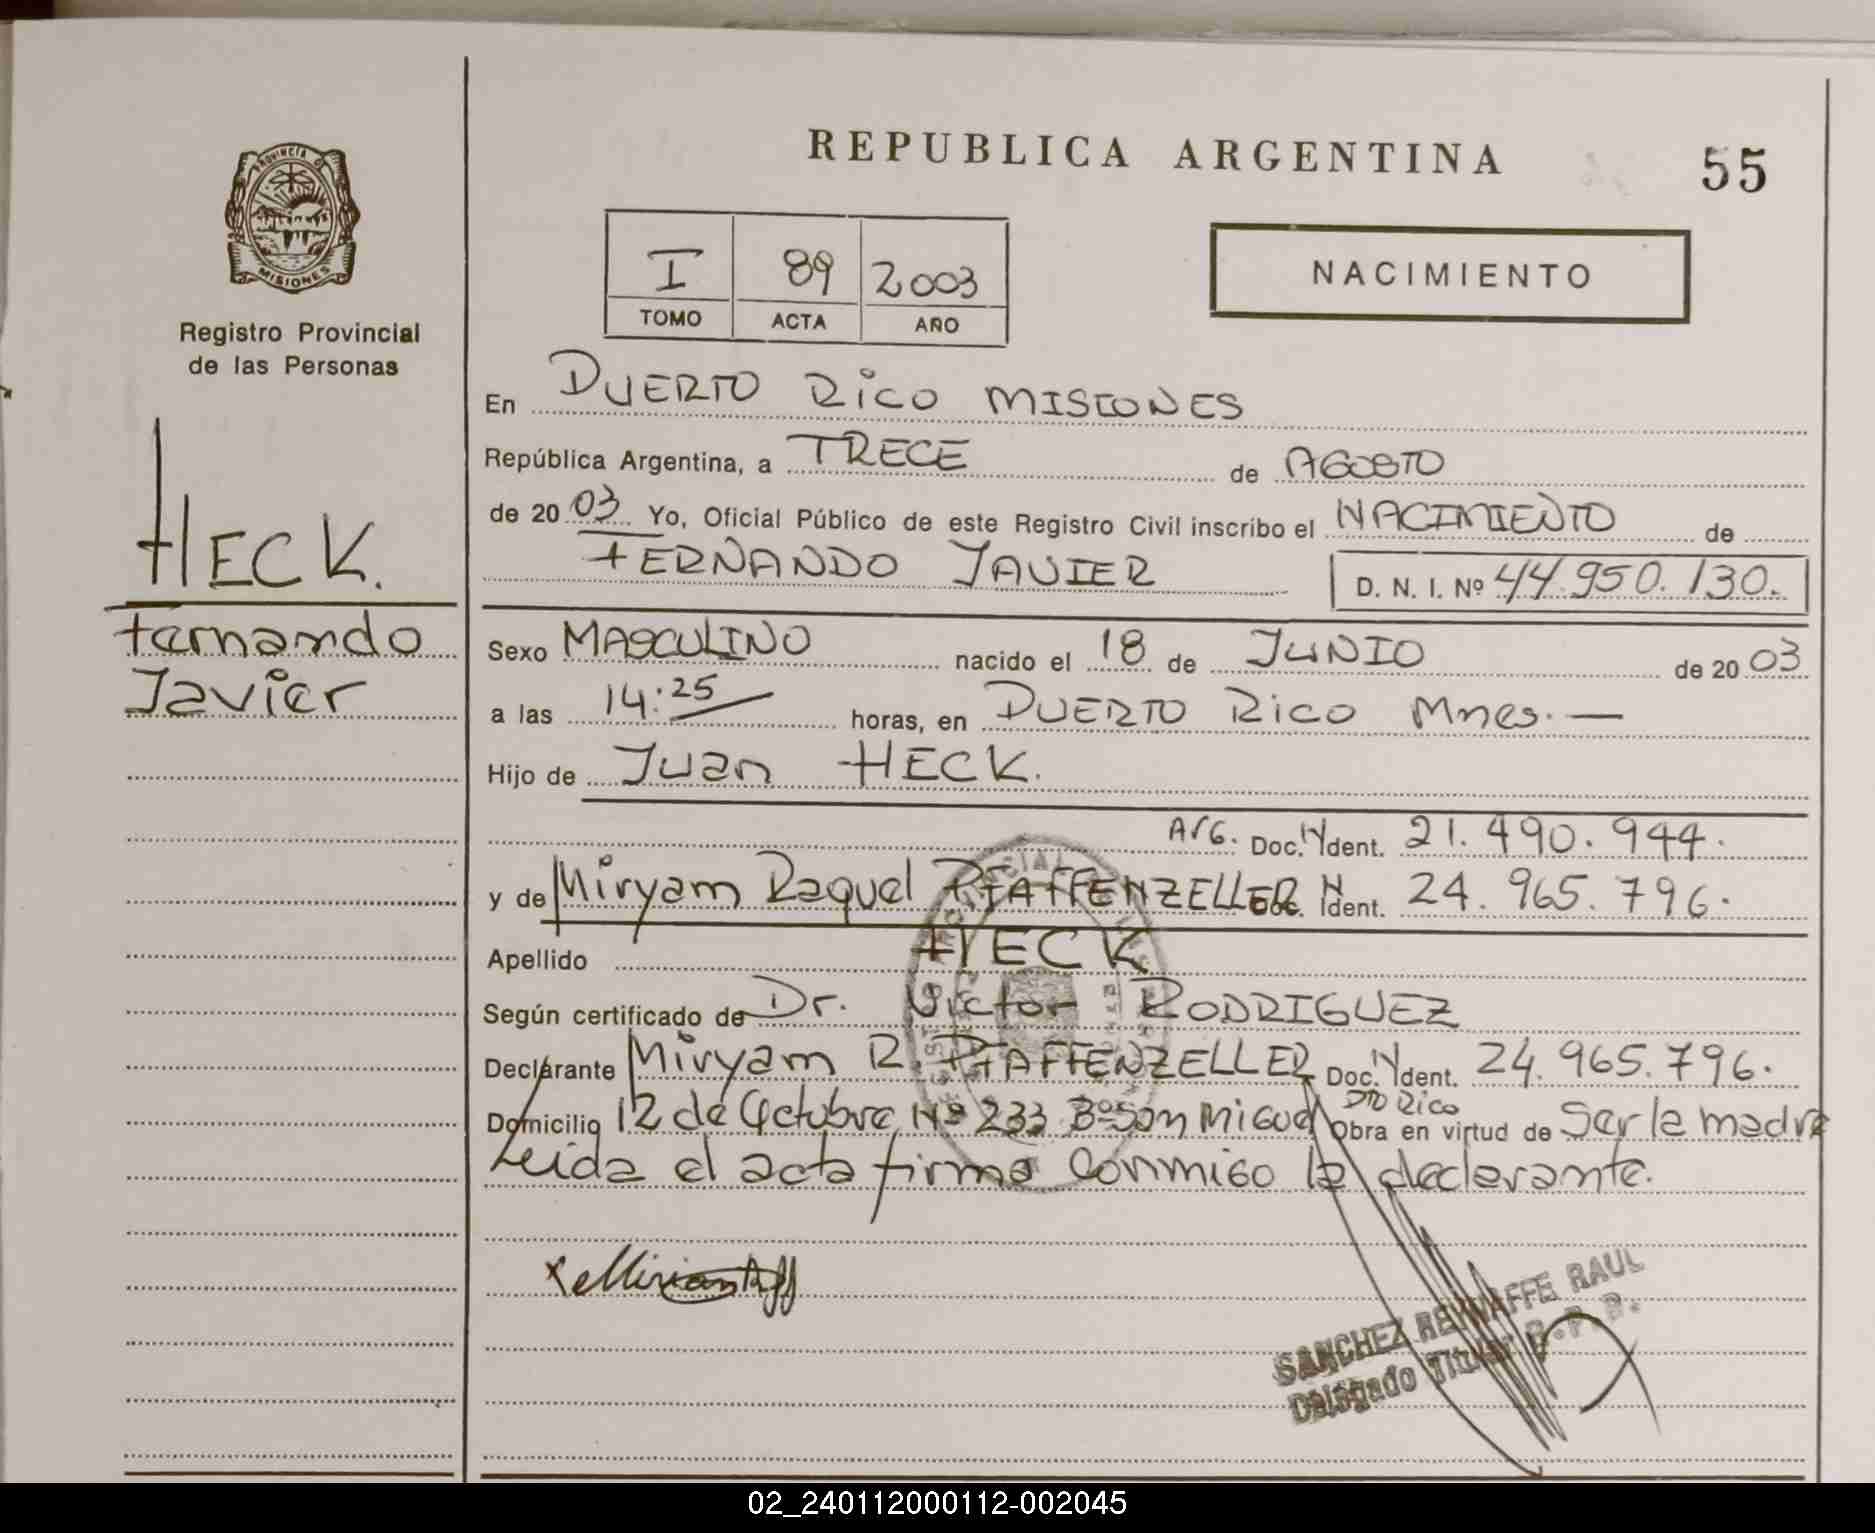 REPUBLICA ARGENTINA
55
PROVINCIA D
MISIONES
Registro Provincial
de las Personas
I 89 2003
TOMO ACTA AÑO
NACIMIENTO
HECK.
Fernando
Javier
En PUERTO RICO MISIONES
República Argentina, a TRECE de AGOSTO
de 2003 Yo, Oficial Público de este Registro Civil inscribo el NACIMIENTO de
FERNANDO JAVIER D. N. I. Nº 44.950.130.
Sexo MASCULINO nacido el 18 de JUNIO de 2003
a las 14:25 horas, en PUERTO RICO Mnes.—
Hijo de Juan HECK.
Arg. Doc. N Ident. 21.490.944.
y de Miryam Raquel PFAFFENZELLER Doc. N Ident. 24.965.796.
Apellido HECK
Según certificado de Dr. Victor RODRIGUEZ
Declarante Miryam R. PFAFFENZELLER Doc. N Ident. 24.965.796.
Domicilio 12 de Octubre Nº 233 Bº San Miguel Pto Rico Obra en virtud de Ser la madre
Leida el acta firma conmigo la declarante.
SANCHEZ RAUL
Delegado Titular R.P.P.
02_240112000112-002045